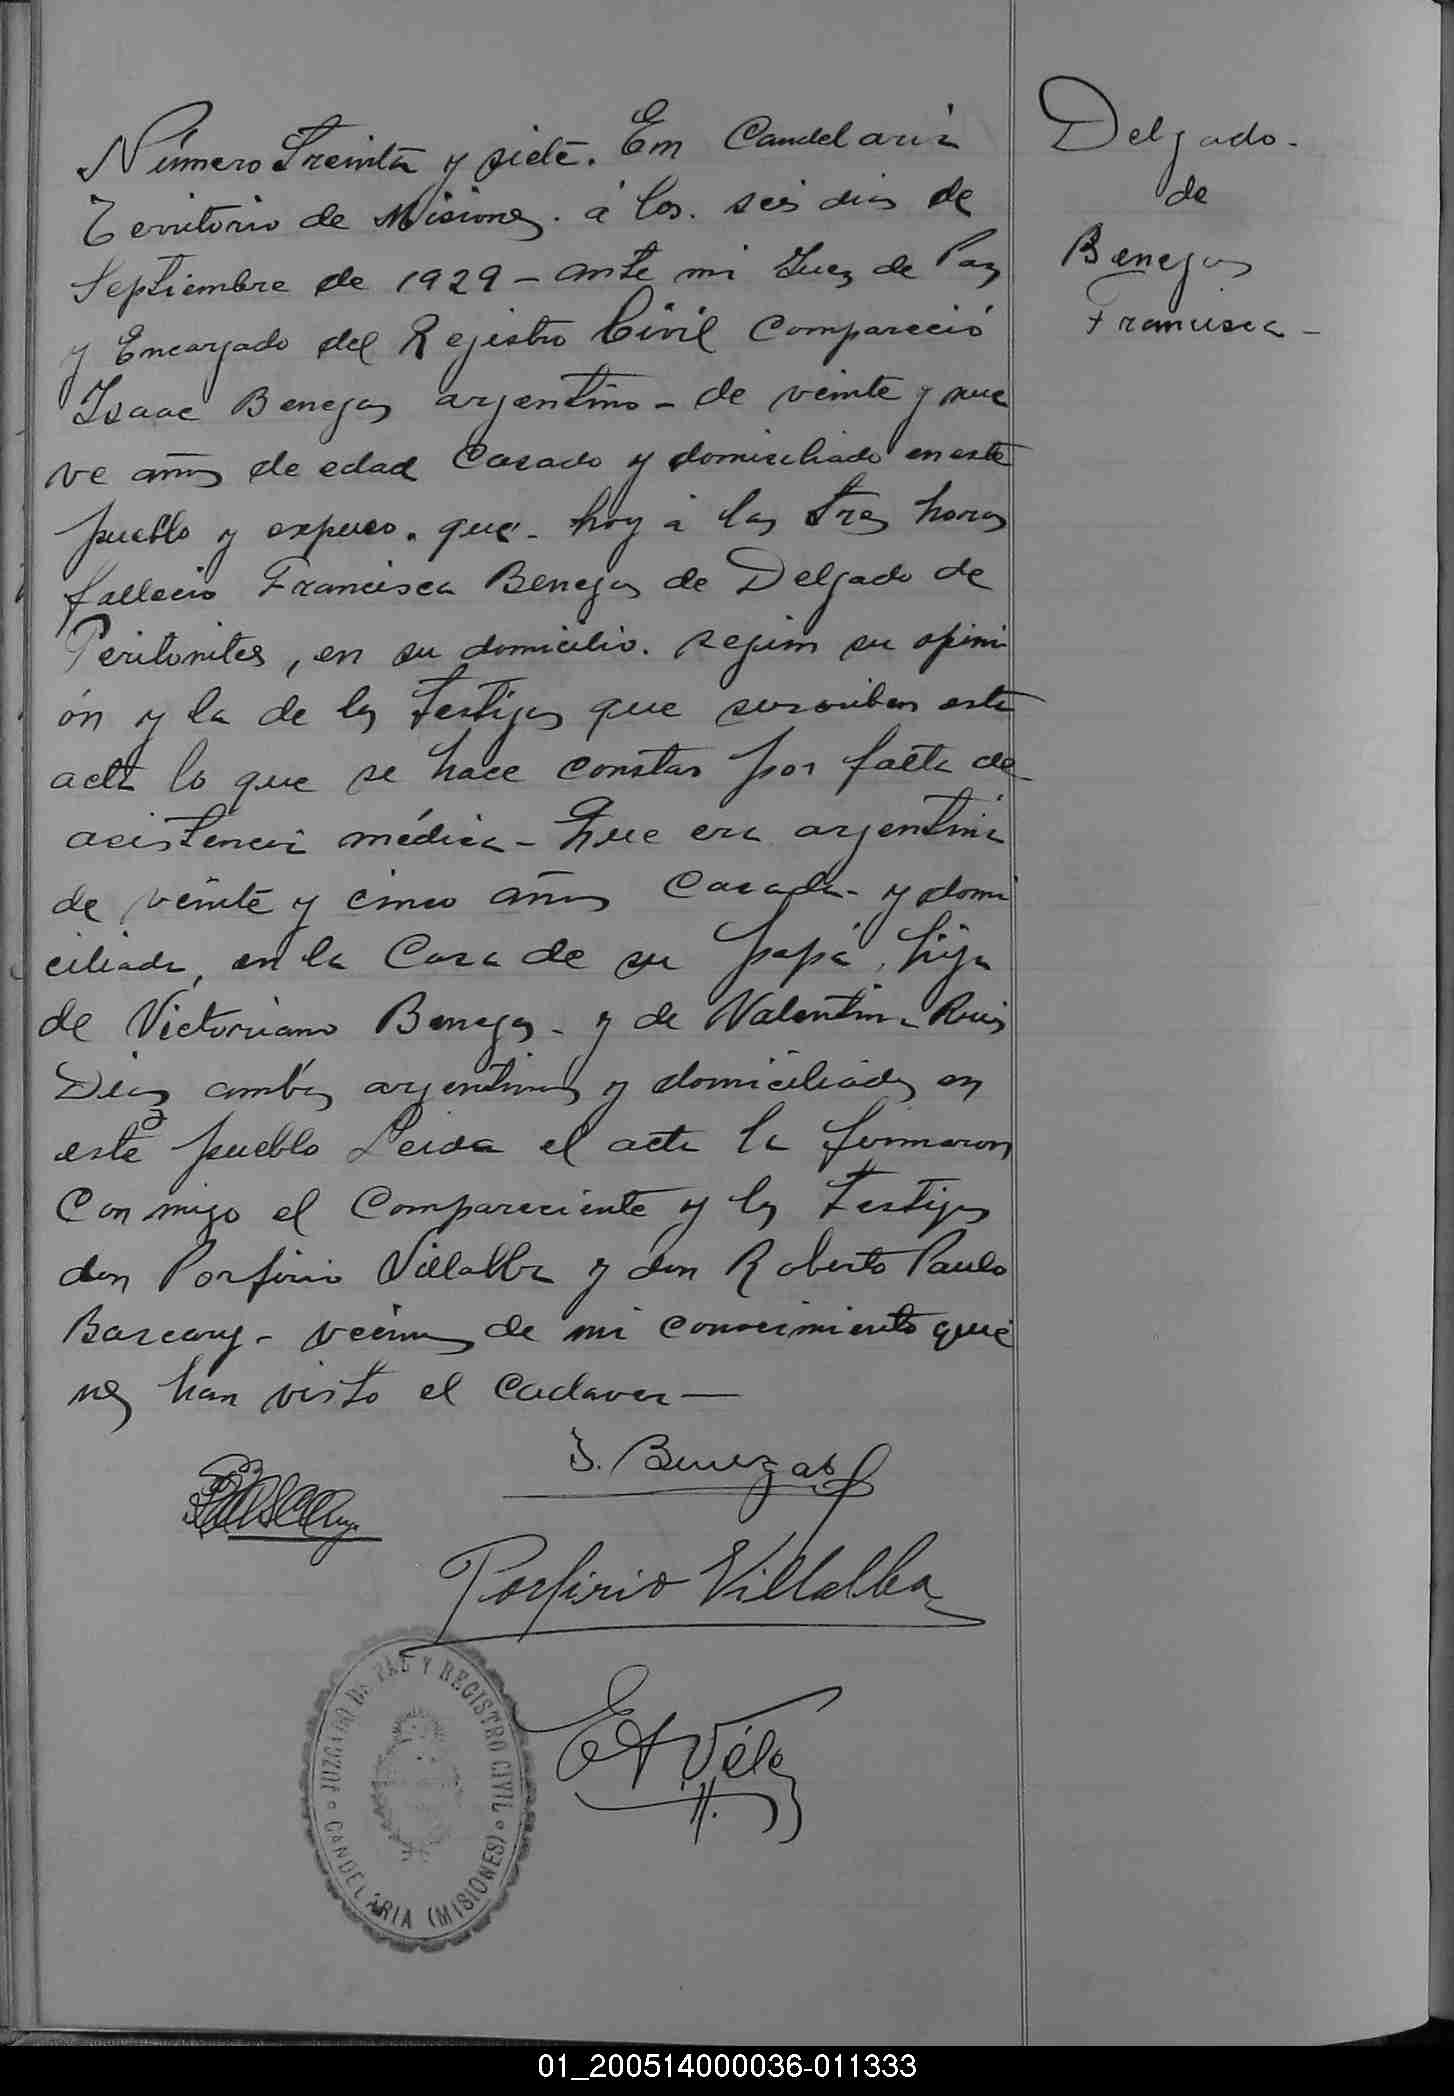 Número treinta y siete. En Candelaria
Territorio de Misiones. á los. seis dias de
Septiembre de 1929 - ante mi Juez de Paz
y Encargado del Registro Civil Compareció
Isaac Benegas argentino - de veinte y nue
ve años de edad Casado y domiciliado en este
pueblo y expuso. que - hoy á las tres horas
fallecio Francisca Benegas de Delgado de
Peritonites, en su domicilio. segun su opini
ón y la de los testigos que suscriben esta
acta lo que se hace constar por falta de
asistencia médica - Que era argentina
de veinte y cinco años Casada - y domi
ciliada, en la Casa de su papá, hija
de Victoriano Benegas - y de Valentina Ruis
Dias ambos argentinos y domiciliados en
este pueblo Leida el acta la firmaron
Con migo el Compareciente y los testigos
don Porfirio Villalba y don Roberto Paulo
Bascary - vecinos de mi conocimiento quie
nes han visto el cadaver -
I. Benegas
Porfirio Villalba
E A Véle
JUZGADO DE PAZ Y REGISTRO CIVIL
CANDELARIA (MISIONES)
Delgado -
de
Benegas
Francisca -
01_200514000036-011333